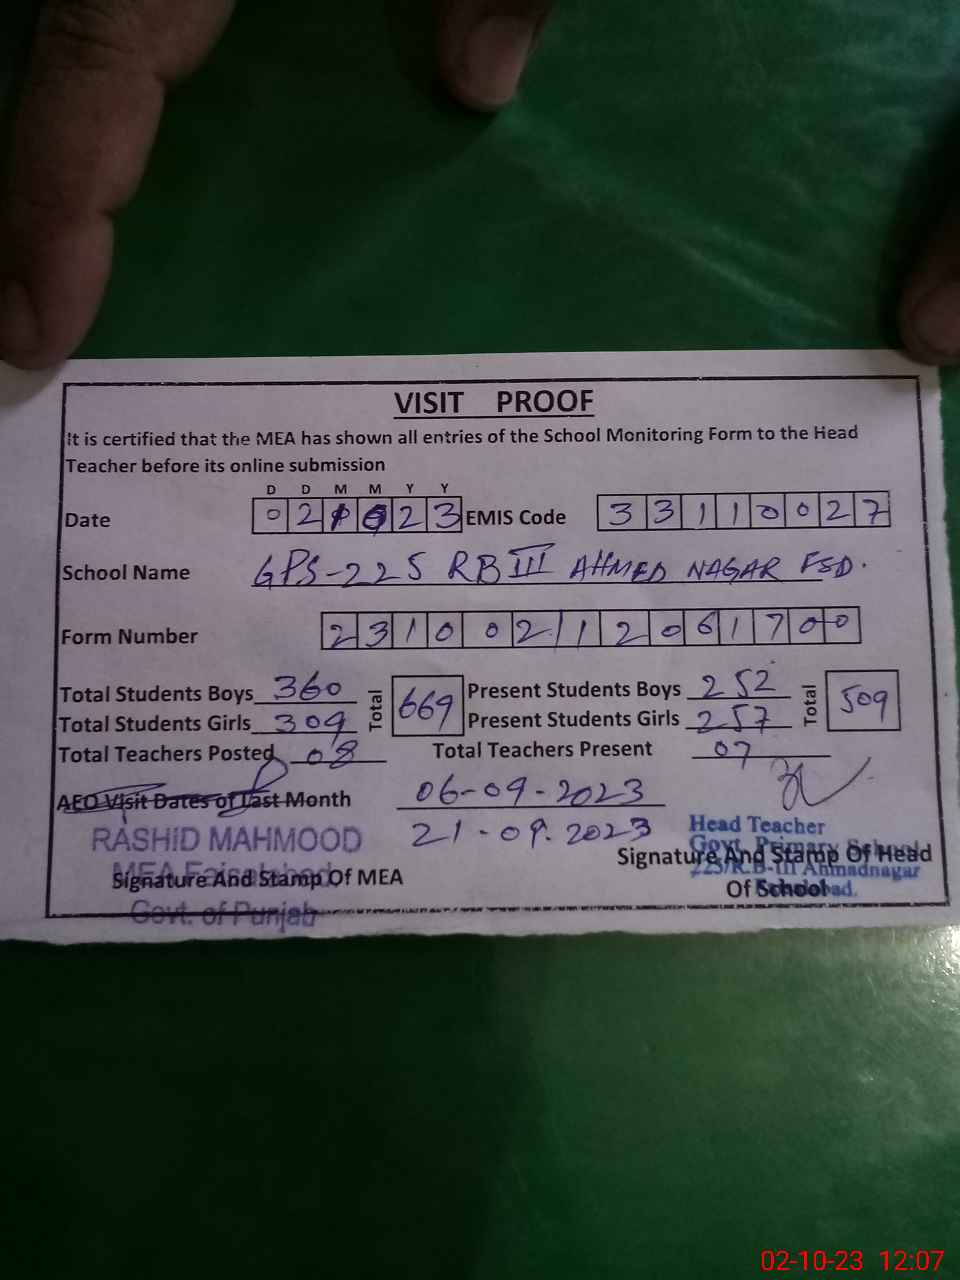 VISIT PROOF
It is certified that the MEA has shown all entries of the School Monitoring Form to the Head
Teacher before its online submission
D D M M Y Y
Date 02 10 23 EMIS Code 33110027
School Name GPS-225 RB III AHMED NAGAR FSD.
Form Number 23100212061700
Total Students Boys 360 Total 669 Present Students Boys 252 Total 509
Total Students Girls 309 Present Students Girls 257
Total Teachers Posted 08 Total Teachers Present 07
AEO Visit Dates of Last Month 06-09-2023
21-09-2023
RASHID MAHMOOD
MEA Faisalabad
Signature And Stamp Of MEA
Govt. of Punjab
Head Teacher
Govt. Primary School
225/R.B-III Ahmadnagar
Signature And Stamp Of Head
Of School
02-10-23 12:07